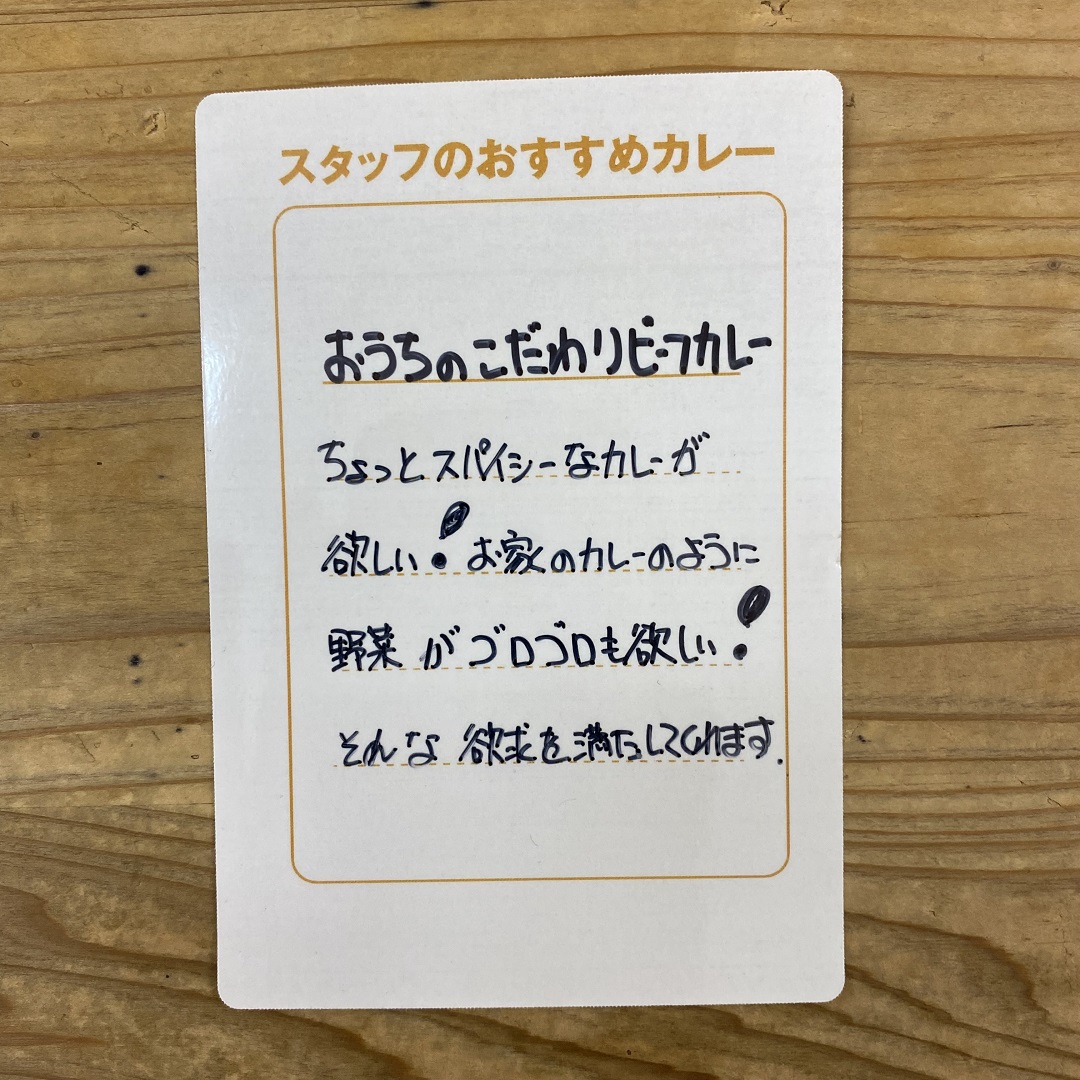 スタッフのおすすめカレー
おうちのこだわりビーフカレー
ちょっとスパイシーなカレーが
欲しい!お家のカレーのように
野菜がゴロゴロも欲しい!
そんな欲求を満たしてくれます.